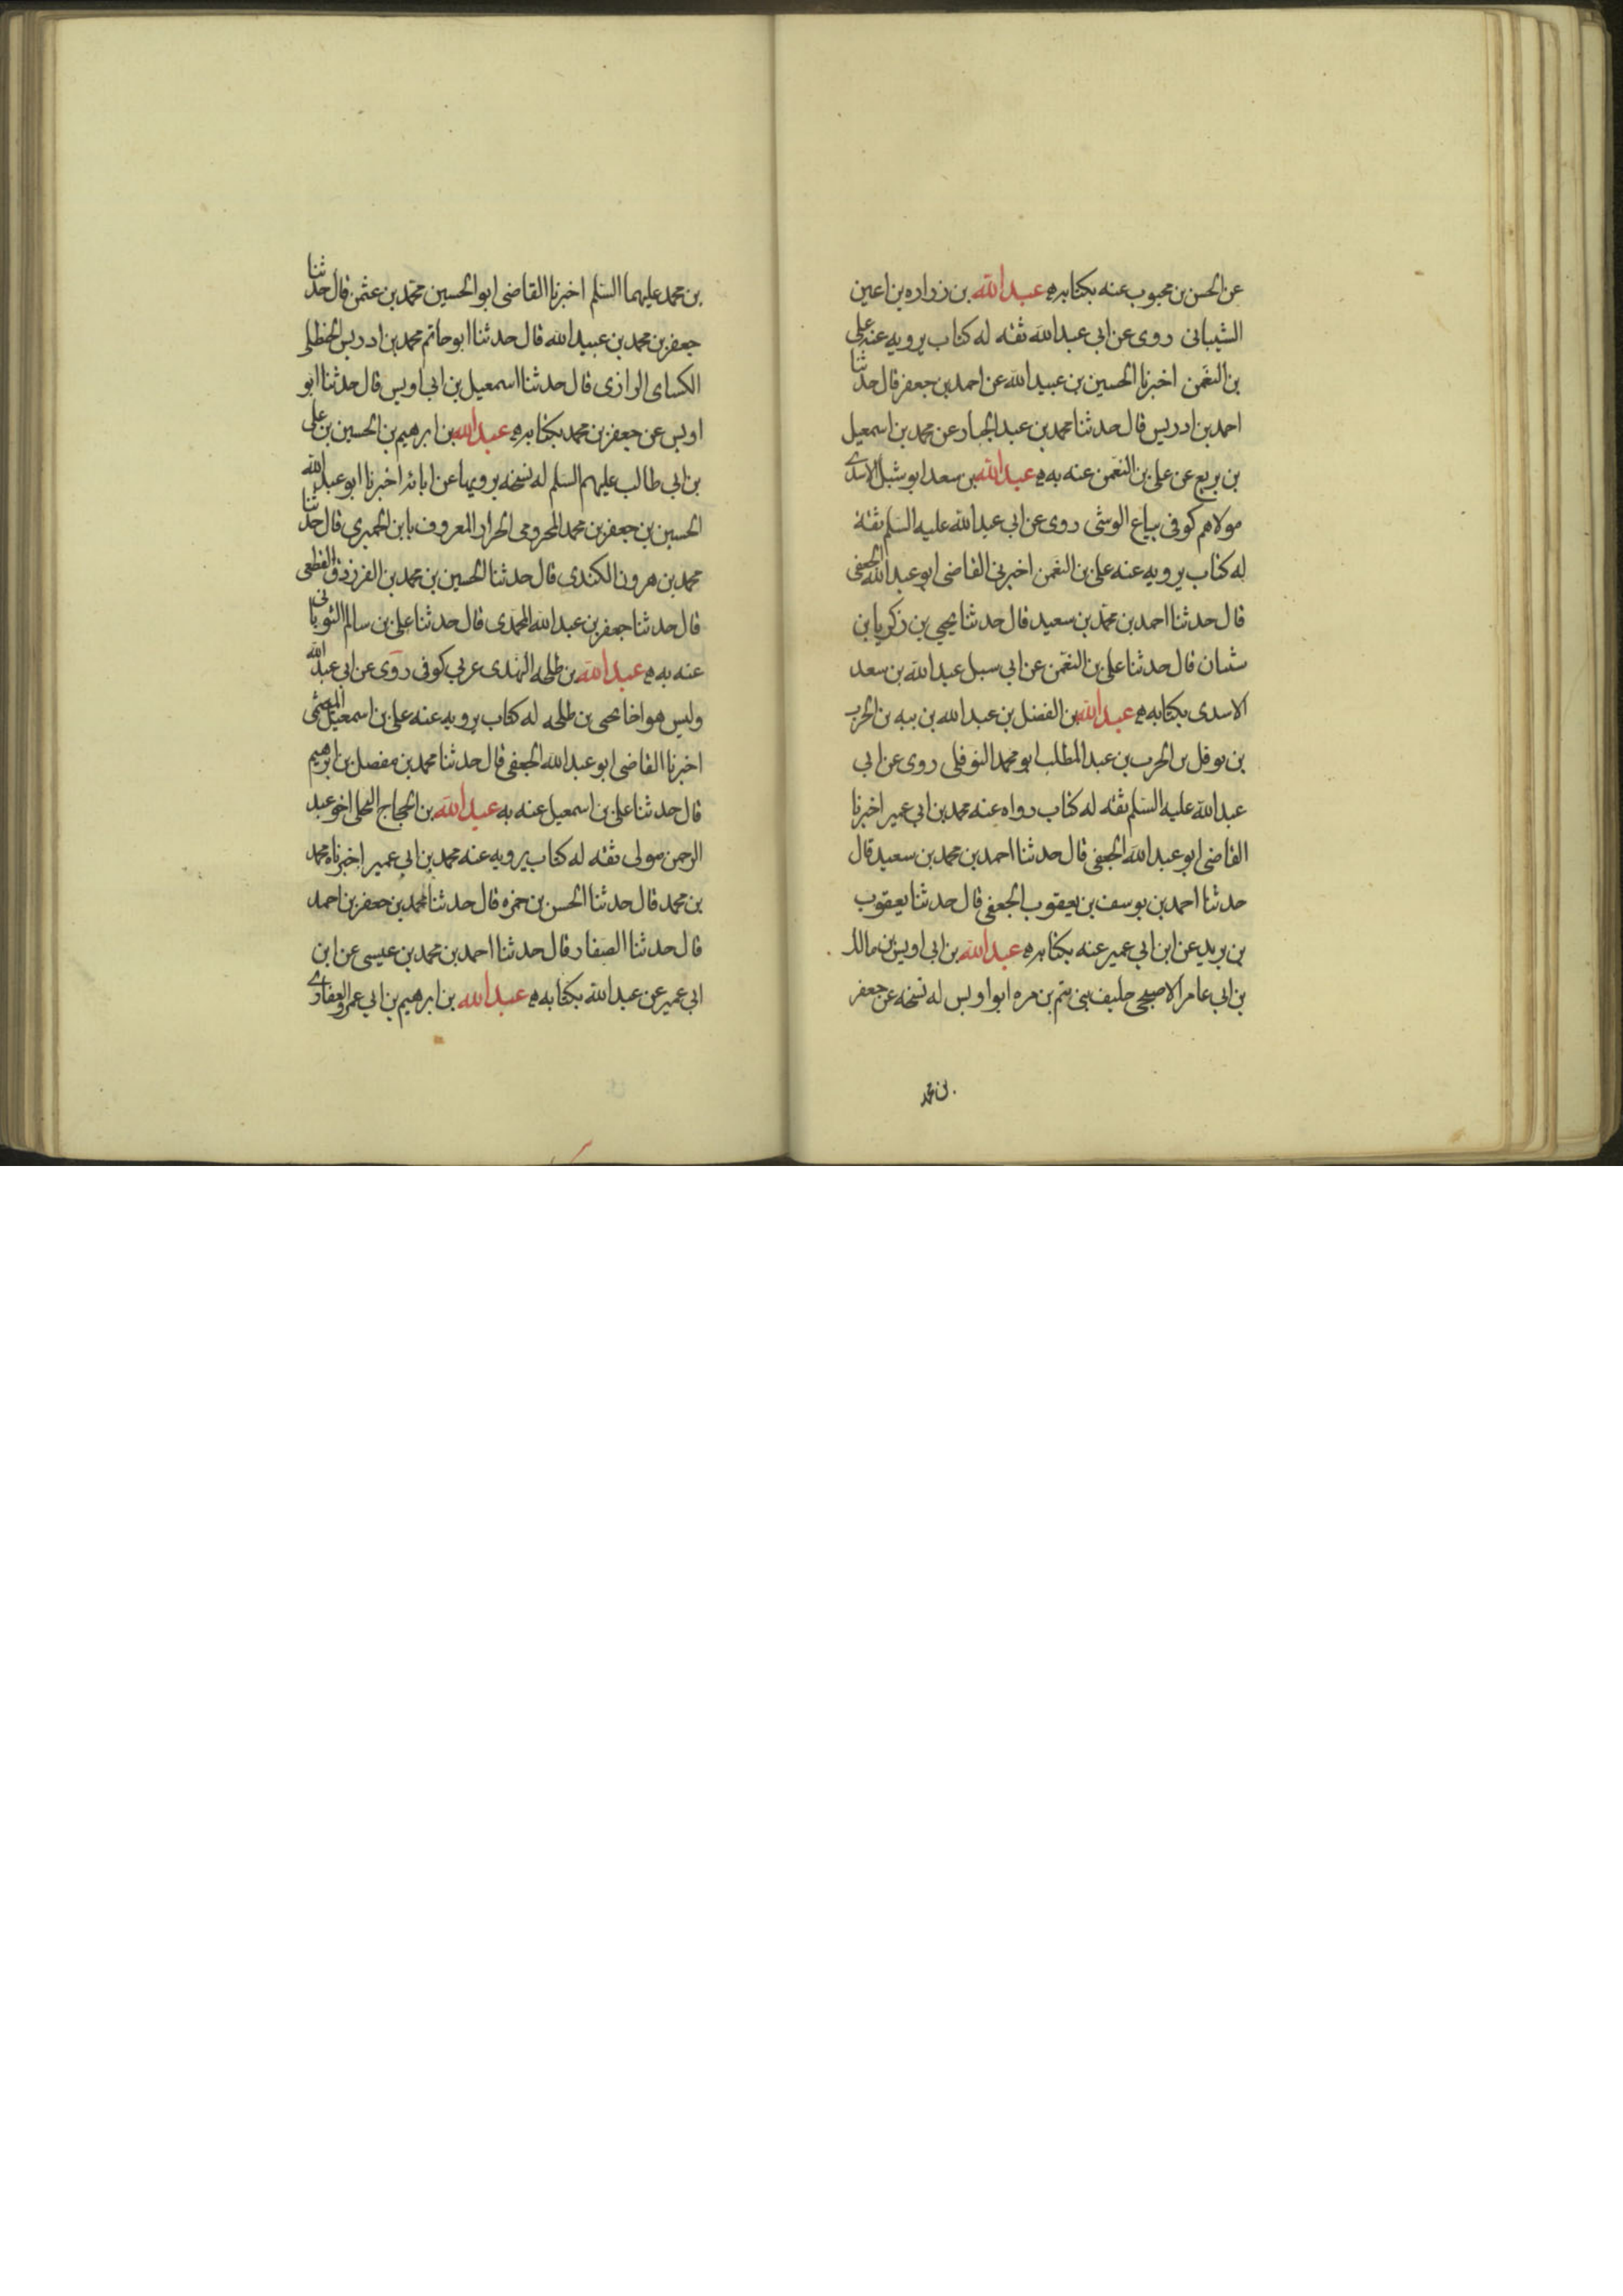 عن الحسن بن محبوب عنه بكتابه ه عبد الله بن زراره بن اعين
الشيبانى روى عن ابي عبد الله ثقه له كتاب يرويه عنه على
بن النعمن اخبرنا الحسين بن عبيد الله عن احمد بن جعفر قال حدثنا
احمد بن ادريس قال حدثنا محمد بن عبد الجبار عن محمد بن اسمعيل
بن بزيع عن على بن النعمن عنه به ه عبد الله بن سعد ابو شبل الاسدى
مولاهم كوفى بياع الوشى روى عن ابي عبد الله عليه السلم ثقة
له كتاب يرويه عنه على بن النعمن اخبرنى القاضى ابو عبد الله الجعفى
قال حدثنا احمد بن محمد بن سعيد قال حدثنا يحيى بن زكريا بن
شيبان قال حدثنا على بن النعمن عن ابي سبل عبد الله بن سعد
الاسدى بكتابه ه عبد الله بن الفضل بن عبد الله بن ببه بن الحرب
بن نوفل بن الحرب بن عبد المطلب ابو محمد النوفلى روى عن ابي
عبد الله عليه السلم ثقه له كتاب رواه عنه محمد بن ابي عمير اخبرنا
القاضى ابو عبد الله الجعفى قال حدثنا احمد بن محمد بن سعيد قال
حدثنا احمد بن يوسف بن يعقوب الجعفى قال حدثنا يعقوب
بن يزيد عن ابن ابي عمير عنه بكتابه ه عبد الله بن ابي اويس بن مالك
بن ابي عامر الاصبحى حليف بنى تيم بن مره ابو اويس له نسخه عن جعفر
بن محمد
بن محمد عليهما السلم اخبرنا القاضى ابو الحسين محمد بن عثمن قال حدثنا
جعفر بن محمد بن عبيد الله قال حدثنا ابو حاتم محمد بن ادريس الحنظلى
الكساى الرازى قال حدثنا اسمعيل بن ابي اويس قال حدثنا ابو
اويس عن جعفر بن محمد بكتابه ه عبد الله بن ابرهيم بن الحسين بن على
بن ابي طالب عليهم السلم له نسخه يرويها عن ابائه اخبرنا ابو عبد الله
الحسين بن جعفر بن محمد المخرومى الحراز المعروف بابن الخمرى قال حدثنا
محمد بن هرون الكندى قال حدثنا الحسين بن محمد بن الفرزدق القطعى
قال حدثنا جعفر بن عبد الله المحمدى قال حدثنا على بن سالم الثوبانى
عنه به ه عبد الله بن طلحه النهدى عربي كوفى روى عن ابي عبد الله
وليس هو اخا يحيى بن طلحه له كتاب يرويه عنه على بن اسمعيل الميثمى
اخبرنا القاضى ابو عبد الله الجعفى قال حدثنا محمد بن مفضل بن ابرهيم
قال حدثنا على بن اسمعيل عنه به عبد الله بن الحجاج البجلى اخو عبد
الرحمن مولى ثقه له كتاب يرويه عنه محمد بن ابي عمير اخبرناه محمد
بن محمد قال حدثنا الحسن بن حمزه قال حدثنا محمد بن جعفر بن احمد
قال حدثنا الصفار قال حدثنا احمد بن محمد بن عيسى عن ابن
ابي عمير عن عبد الله بكتابه ه عبد الله بن ابرهيم بن ابي عمرو الغفارى